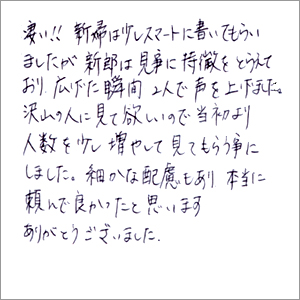 凄い!! 新婦は少しスマートに書いてもらい
ましたが 新郎は見事に特徴をとらえて
おり、広げた瞬間 2人で声を上げました。
沢山の人に見て欲しいので当初より
人数を少し増やして見てもらう事に
しました。細かな配慮もあり 本当に
頼んで良かったと思います
ありがとうございました.